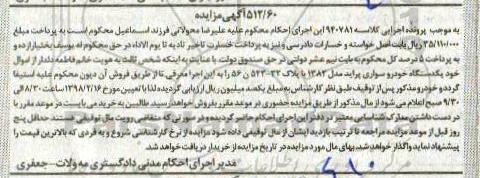 ۵۱۲/۶۰ آگهی مزایده
به موجب پرونده اجرایی کلاسه ۹۴۰۷۸۱ این اجرای احکام محکوم علیه علیرضا محولاتی فرزند اسماعیل محکوم است به پرداخت مبلغ
۳۵/۱۱۰/۰۰۰ ریال بابت اصل خواسته و خسارات دادرسی و نیز به پرداخت خسارت تاخیر تادیه تا یوم الاداء در حق محکوم له یوسف بختیارزاده و
به پرداخت ۵ درصد کل محکوم به بابت نیم عشر دولتی در حق صندوق دولت با عنایت به اینکه شخص ثالث به هویت خانم فاطمه دلدار از اموال
خود یکدستگاه خودرو سواری پراید مدل ۱۳۸۲ با پلاک ۳۲-۵۲۳ ن ۵۶ را به این اجرا معرفی تا از طریق فروش آن دیون محکوم علیه استیفا
گردد و خودرو مذکور پس از توقیف طبق نظر کارشناس به مبلغ یکصد میلیون ریال ارزیابی گردیده لذا با تعیین مورخ ۱۳۹۸/۲/۱۶ ساعت ۸/۳۰ الی
۹/۳۰ صبح اعلام می شود از مال مذکور از طریق مزایده حضوری در موعد مقرر بفروش خواهد رسید طالبین به خرید می بایست در موعد مقرر با
در دست داشتن مدارک شناسایی معتبر در دفتر این اجرای احکام حاضر گردیده و در صورتی که متقاضی رویت مال توقیفی هستند حداقل پنج
روز قبل از موعد مزایده مراجعه تا ترتیب بازدید ایشان از مال توقیفی داده شود مزایده از نرخ کارشناسی شروع و به فردی که بالاترین قیمت را
پیشنهاد نماید واگذار خواهد شد. بهای مال مورد مزایده در تاریخ مزایده از خریدار دریافت خواهد شد.
مدیر اجرای احکام مدنی دادگستری مه ولات - جعفری